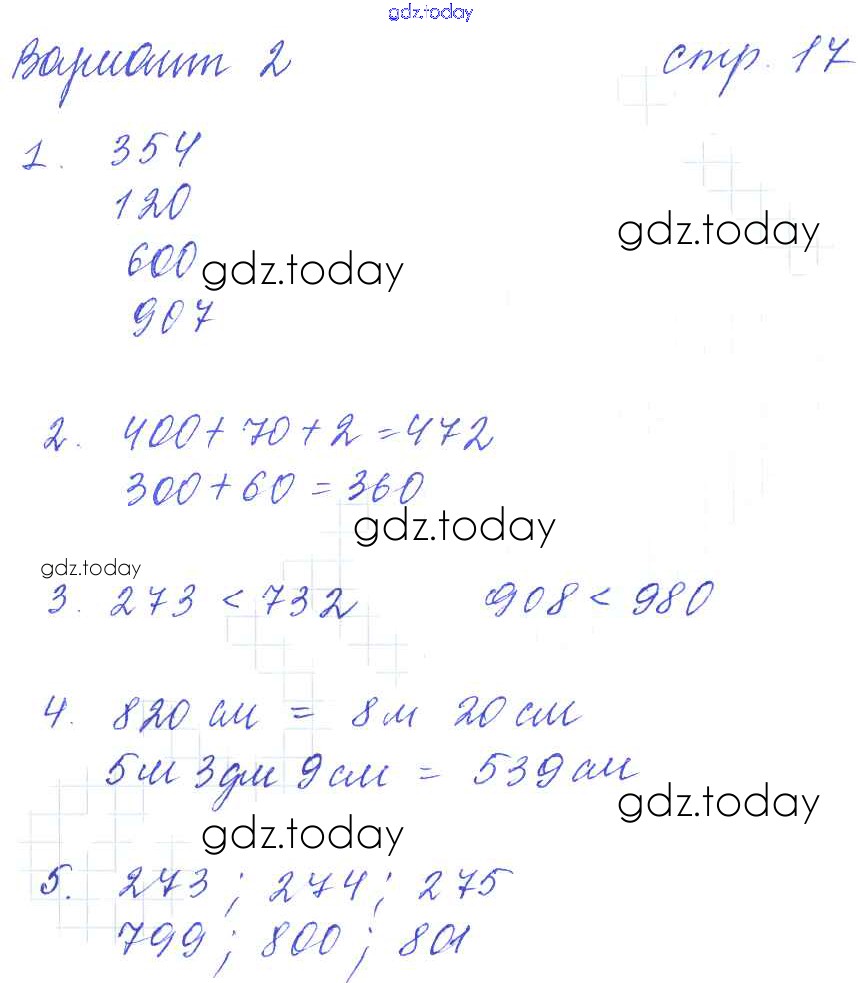 gdz.today
Вариант 2 стр. 17
1. 354
120
600
gdz.today
gdz.today
907
2. 400+70+2=472
300+60=360
gdz.today
gdz.today
3. 273<732 908<980
4. 820 см = 8м 20 см
5м 3дм 9см = 539 см
gdz.today
gdz.today
5. 273; 274; 275
799; 800; 801